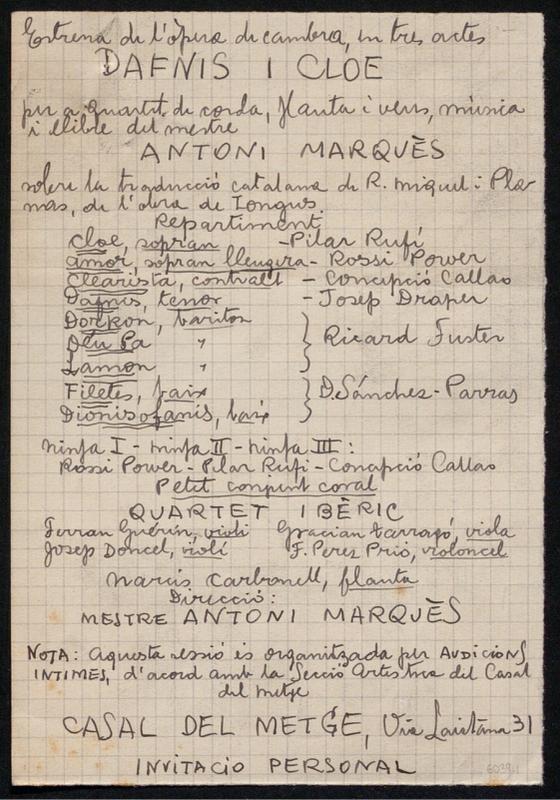 Estrena de l'òpera de cambra, en tres actes
DAFNIS I CLOE
per a quartet de corda, flauta i veus, música
i llibre del mestre
ANTONI MARQUÈS
sobre la traducció catalana de R. Miquel i Pla-
nas, de l'obra de Longus.
Repartiment
Cloe, sopran - Pilar Rufí
Amor, sopran lleugera - Rossi Power
Clearista, contralt - Concepció Callao
Dafnis, tenor - Josep Draper
Dorkon, bariton
Déu Pa "
Lamon "
} Ricard Fuster
Filetes, baix
Dionisofanis, baix
} D. Sánchez-Parras
Ninfa I - ninfa II - ninfa III:
Rossi Power - Pilar Rufí - Concepció Callao
Petit conjunt coral
QUARTET IBÈRIC
Ferran Guérin, violí Gracian Tarragó, viola
Josep Doncel, violí F. Perez Prió, violoncel
Narcís Carbonell, flauta
Direcció:
MESTRE ANTONI MARQUÈS
NOTA: Aquesta sessió és organitzada per AUDICIONS
INTIMES, d'acord amb la Secció Artística del Casal
del metge
CASAL DEL METGE, Via Laietana 31
INVITACIO PERSONAL